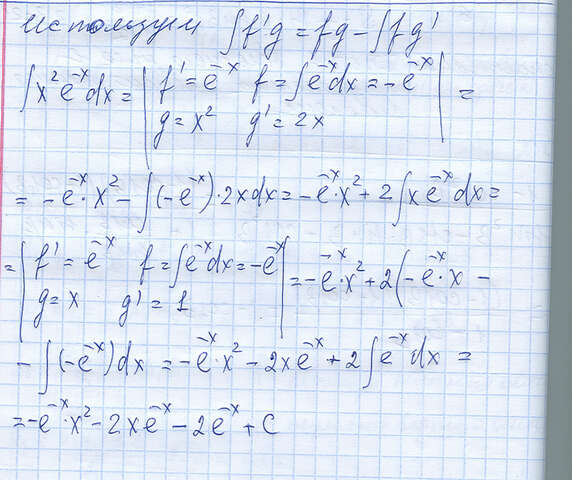 используем ∫f'g = fg - ∫fg'
∫x²e⁻ˣdx = | f' = e⁻ˣ f = ∫e⁻ˣdx = -e⁻ˣ | =
g = x² g' = 2x
= -e⁻ˣ·x² - ∫(-e⁻ˣ)·2xdx = -e⁻ˣ·x² + 2∫xe⁻ˣdx =
= | f' = e⁻ˣ f = ∫e⁻ˣdx = -e⁻ˣ | = -e⁻ˣ·x² + 2(-e⁻ˣ·x -
g = x g' = 1
- ∫(-e⁻ˣ)dx = -e⁻ˣ·x² - 2xe⁻ˣ + 2∫e⁻ˣdx =
= -e⁻ˣ·x² - 2xe⁻ˣ - 2e⁻ˣ + C